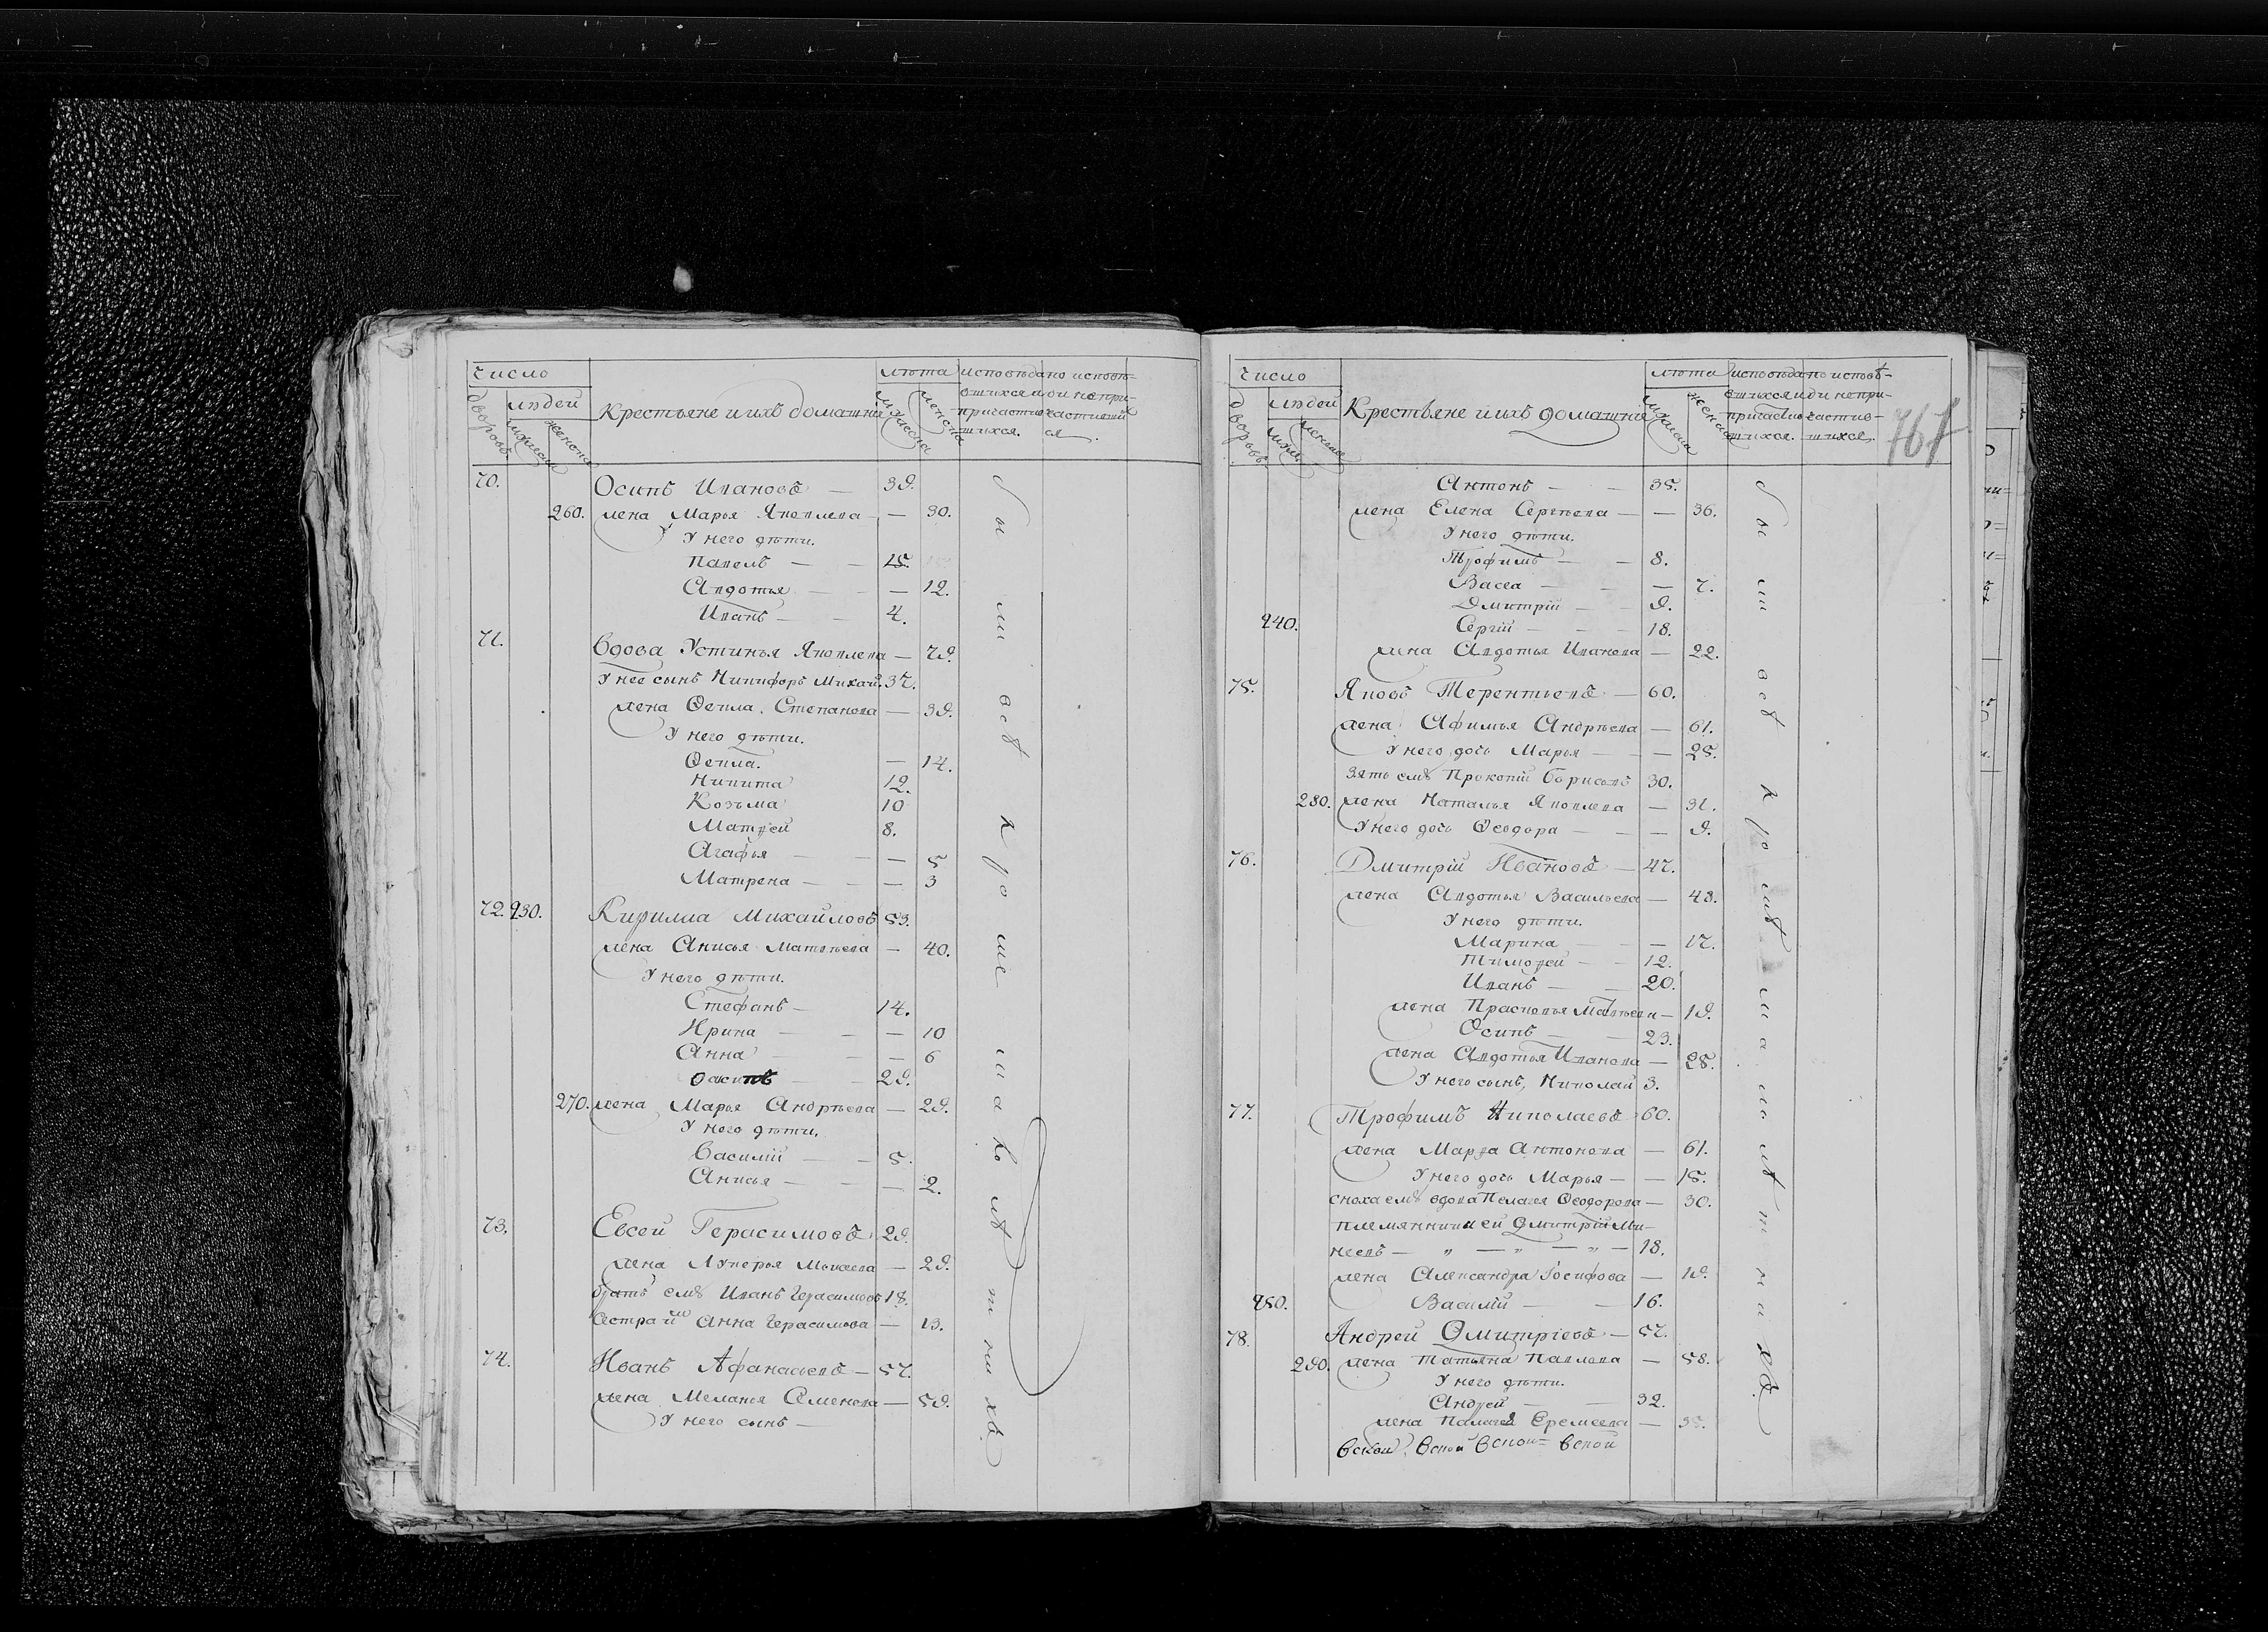 число
людей
дворовъ.
мужска
женска
Крестьяне и ихъ домашнiя
лѣта
мужеска
женска
исповѣда
вшихся и
причастив
шихся.
но исповѣ-
ди не при-
частивший
ся.
70. Осипъ Ивановъ — 39.
260. жена Марья Яковлева — — 30.
У него дѣти.
Павелъ — — 15.
Авдотья — — — 12.
Иванъ — — 4.
71. Вдова Устинья Яковлева — 79.
У нее сынъ Никифоръ Михай. 37.
жена Ѳекла Степанова — 39.
У него дѣти.
Ѳекла. — 14.
Никита 12.
Козьма 10
Матѳей 8.
Агафья — — — 5
Матрена — — — 3
72. 230. Кирилла Михайловъ 53.
жена Анисья Матвѣева — 40.
У него дѣти.
Стефанъ — 14.
Ирина — — — 10
Анна — — — 6
Осипъ — — 29.
270. жена Марья Андрѣева — 29.
У него дѣти.
Василiй — — 5.
Анисья — — — 2.
73. Евсей Герасимовъ 29.
жена Лукерья Моисеева — 29.
братъ емѹ Иванъ Герасимовъ 18.
Сестра имъ Анна Герасимова — 13.
74. Иванъ Афанасьевъ — 57.
жена Меланья Семенова — 59.
У него сынъ —
были всѣ в прошлыхъ
число
людей
дворовъ
мужс.
женска
Крестьяне и ихъ домашнiя
лѣта
мужска
женска
исповѣда
вшихся и
причастив
шихся.
но исповѣ-
ди не при-
частив-
шихся.
767
Антонъ — — 35.
жена Елена Сергѣева — — 36.
У него дѣти.
Трофимъ — — 8.
Васса — — — 7.
Дмитрiй — — 9.
240. Сергiй — — — 18.
жена Авдотья Иванова — 22.
75. Яковъ Терентьевъ — 60.
жена Афимья Андрѣева — 61.
У него дочь Марья — — — 25.
Зять емѹ Прокопiй Борисовъ 30.
280. жена Наталья Яковлева — 31.
У него дочь Ѳеодора — — — 9.
76. Дмитрiй Ивановъ — 47.
жена Авдотья Васильева — 48.
У него дѣти.
Марина — — — 17.
Тимоѳей — — 12.
Иванъ — — 20.
жена Прасковья Матвѣева — 19.
Осипъ — — 23.
жена Авдотья Иванова — 25.
У него сынъ, Николай 3.
77. Трофимъ Николаевъ 60.
жена Марѳа Антонова — 61.
У него дочь Марья — — 15.
сноха емѹ вдова Пелагея Ѳеодорова — 30.
племянники ей Дмитрiй Ми-
неевъ — „ — „ — „ — 18.
жена Александра Iосифова — 19.
250. Василiй — — 16.
78. Андрей Дмитрiевъ — 57.
290. жена Татьяна Павлова — 58.
У него дѣти.
Андрей — — 32.
жена Палагея Еремеева — 35.